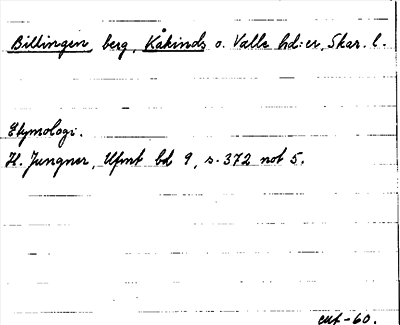 Billingen, berg, Kåkinds o. Valle hd:er, Skar. l.
Etymologi.
H. Jungner, Ufmt bd 9, s. 372 not 5.
-60.